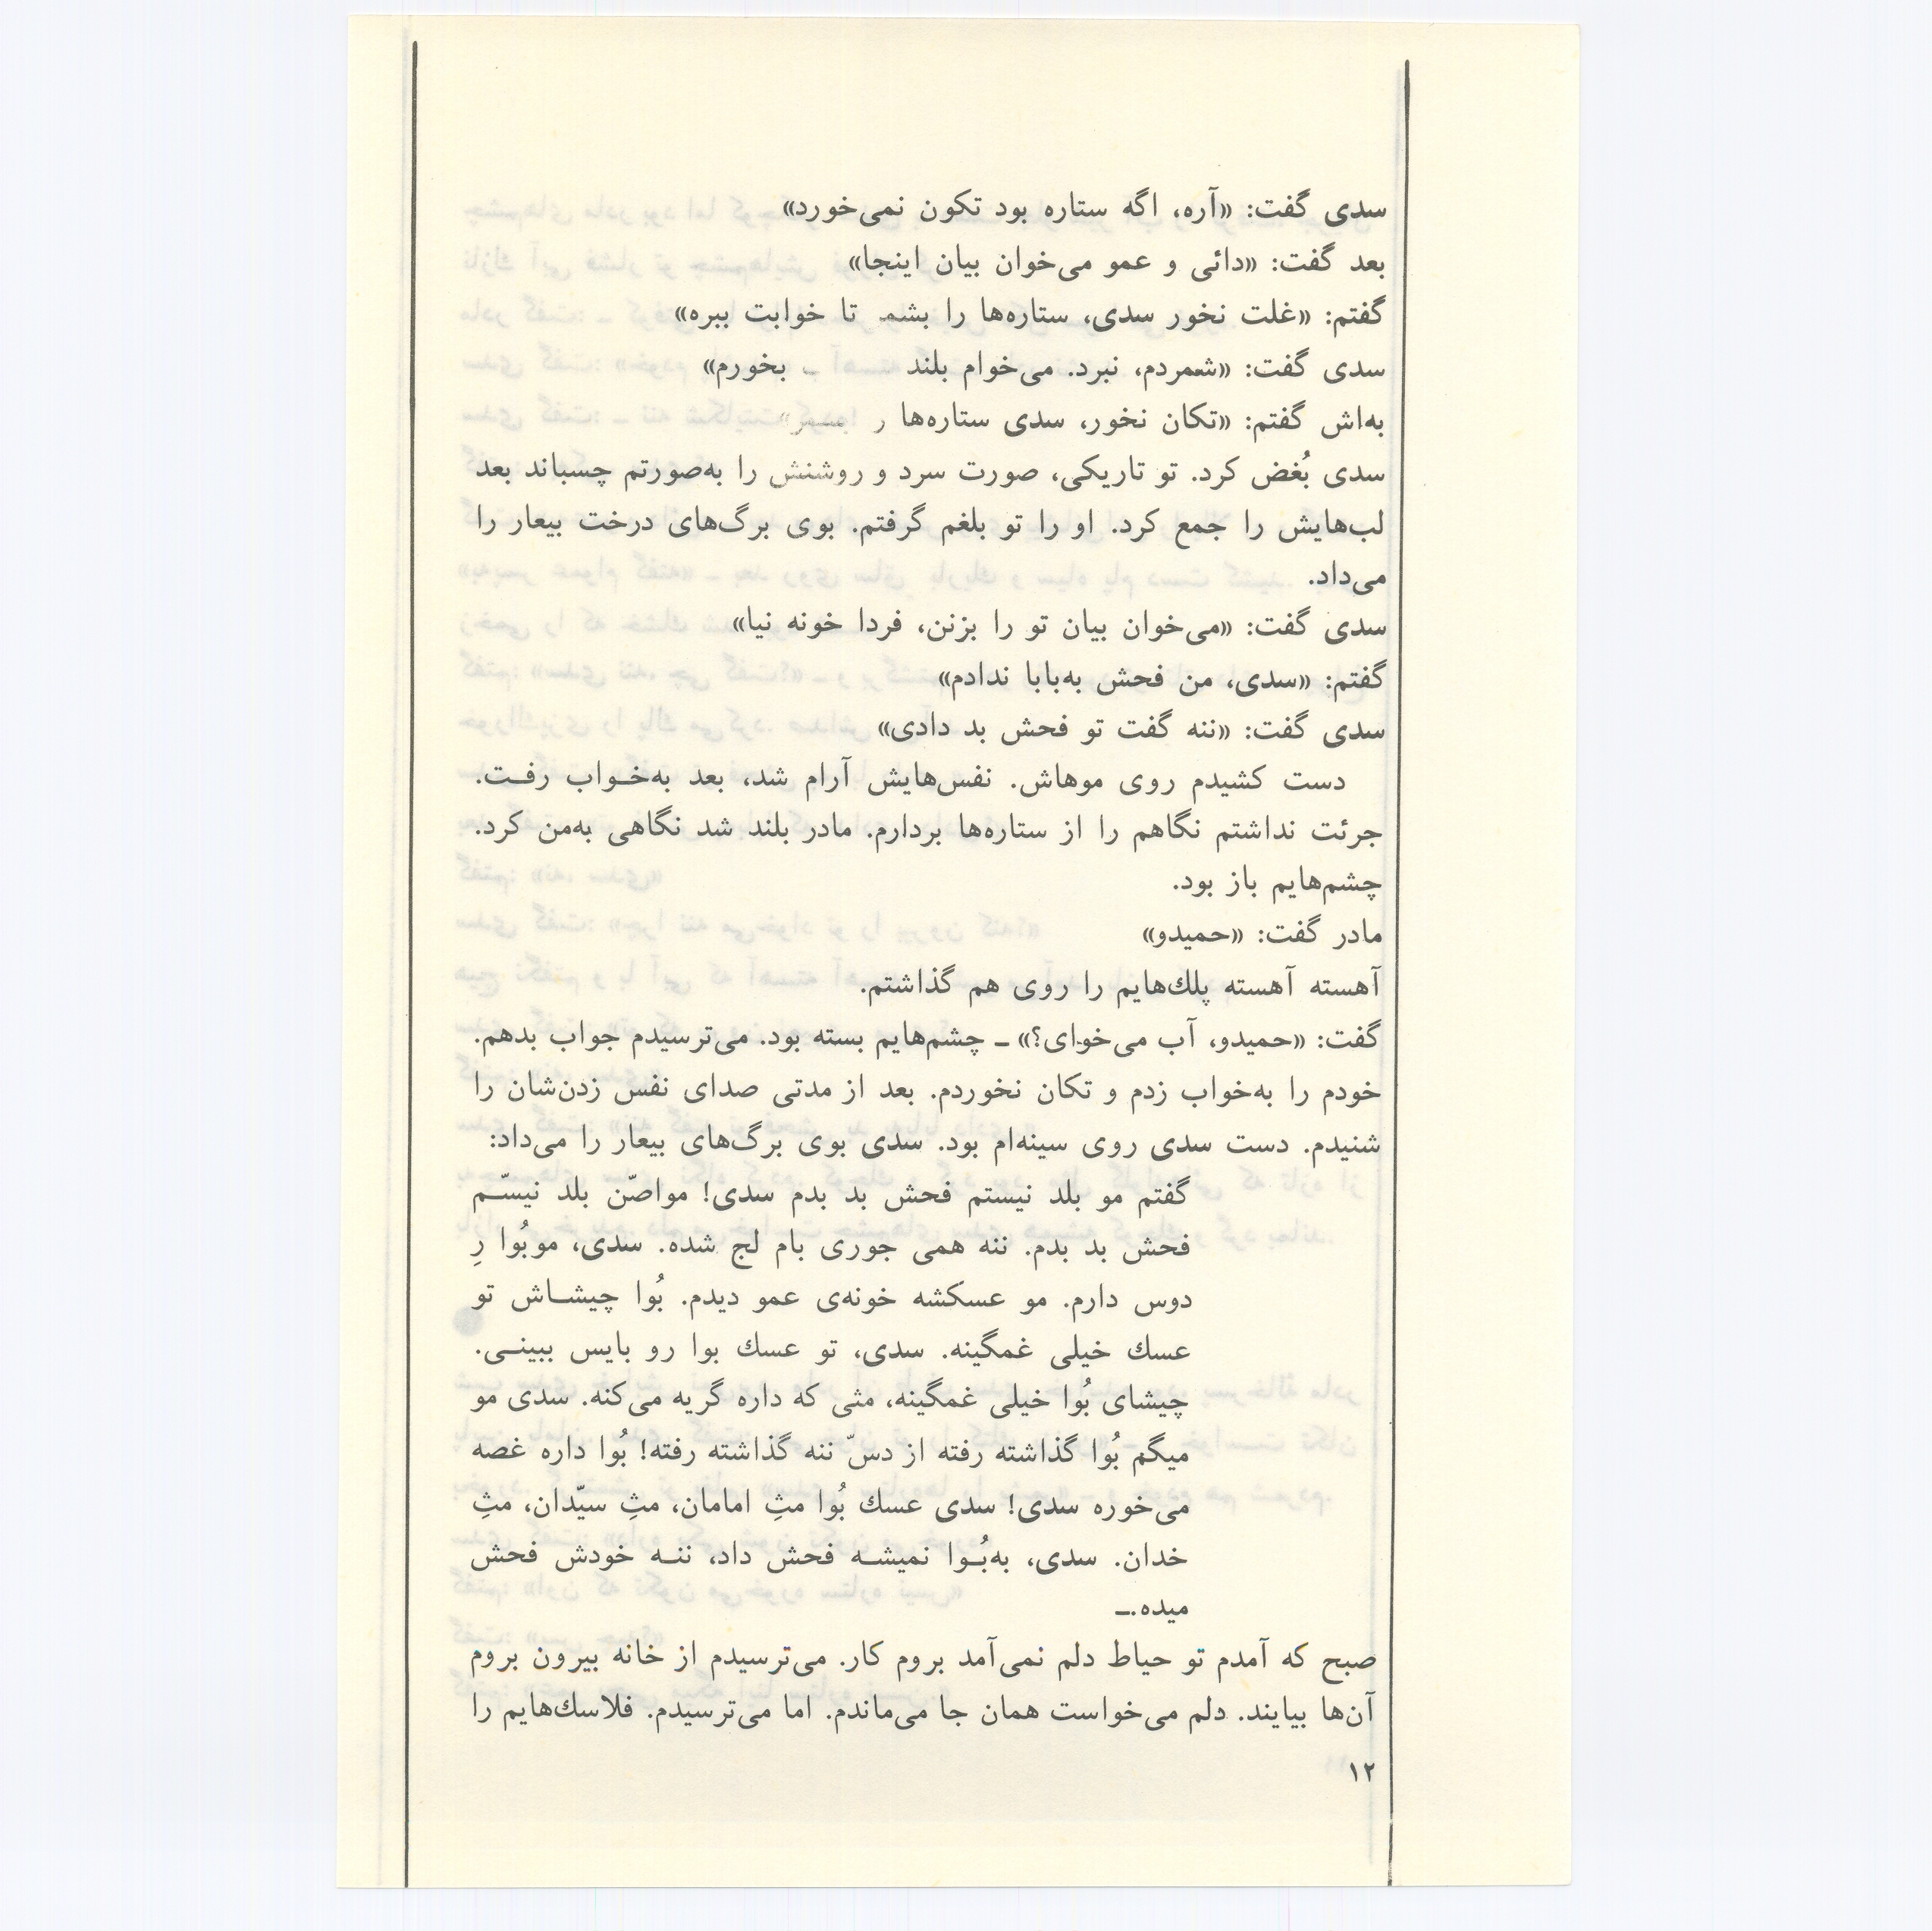 سدی گفت: «آره، اگه ستاره بود تکون نمی‌خورد»
بعد گفت: «دائی و عمو می‌خوان بیان اینجا»
گفتم: «غلت نخور سدی، ستاره‌ها را بشمر تا خوابت ببره»
سدی گفت: «شمردم، نبرد. می‌خوام بلند بخورم»
به‌اش گفتم: «تکان نخور، سدی ستاره‌ها
سدی بُغض کرد. تو تاریکی، صورت سرد و روشنش را به‌صورتم چسباند بعد
لب‌هایش را جمع کرد. او را تو بلغم گرفتم. بوی برگ‌های درخت بیعار را
می‌داد.
سدی گفت: «می‌خوان بیان تو را بزنن، فردا خونه نیا»
گفتم: «سدی، من فحش به‌بابا ندادم»
سدی گفت: «ننه گفت تو فحش بد دادی»
دست کشیدم روی موهاش. نفس‌هایش آرام شد، بعد به‌خواب رفت.
جرئت نداشتم نگاهم را از ستاره‌ها بردارم. مادر بلند شد نگاهی به‌من کرد.
چشم‌هایم باز بود.
مادر گفت: «حمیدو»
آهسته آهسته پلك‌هایم را روی هم گذاشتم.
گفت: «حمیدو، آب می‌خوای؟» ـ چشم‌هایم بسته بود. می‌ترسیدم جواب بدهم.
خودم را به‌خواب زدم و تکان نخوردم. بعد از مدتی صدای نفس زدن‌شان را
شنیدم. دست سدی روی سینه‌ام بود. سدی بوی برگ‌های بیعار را می‌داد:
گفتم مو بلد نیستم فحش بد بدم سدی! مواصّن بلد نیسّم
فحش بد بدم. ننه همی جوری بام لج شده. سدی، موبُوا رِ
دوس دارم. مو عسکشه خونه‌ی عمو دیدم. بُوا چیشاش تو
عسك خیلی غمگینه. سدی، تو عسك بوا رو بایس ببینی.
چیشای بُوا خیلی غمگینه، مثی که داره گریه می‌کنه. سدی مو
میگم بُوا گذاشته رفته از دسّ ننه گذاشته رفته! بُوا داره غصه
می‌خوره سدی! سدی عسك بُوا مثِ امامان، مثِ سیّدان، مثِ
خدان. سدی، به‌بُوا نمیشه فحش داد، ننه خودش فحش
میده.ـ
صبح که آمدم تو حیاط دلم نمی‌آمد بروم کار. می‌ترسیدم از خانه بیرون بروم
آن‌ها بیایند. دلم می‌خواست همان جا می‌ماندم. اما می‌ترسیدم. فلاسك‌هایم را
۱۲